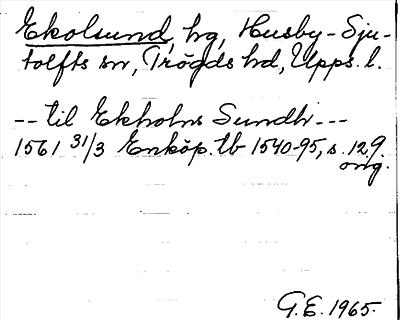 Ekolsund, hg, Husby-Sju-
tolfts sn, Trögds hd, Upps. l.
-- til Ekholms Sundh ---
1561 31/3 Enköp. tb 1540-95, s. 129.
orig.
G.E. 1965.